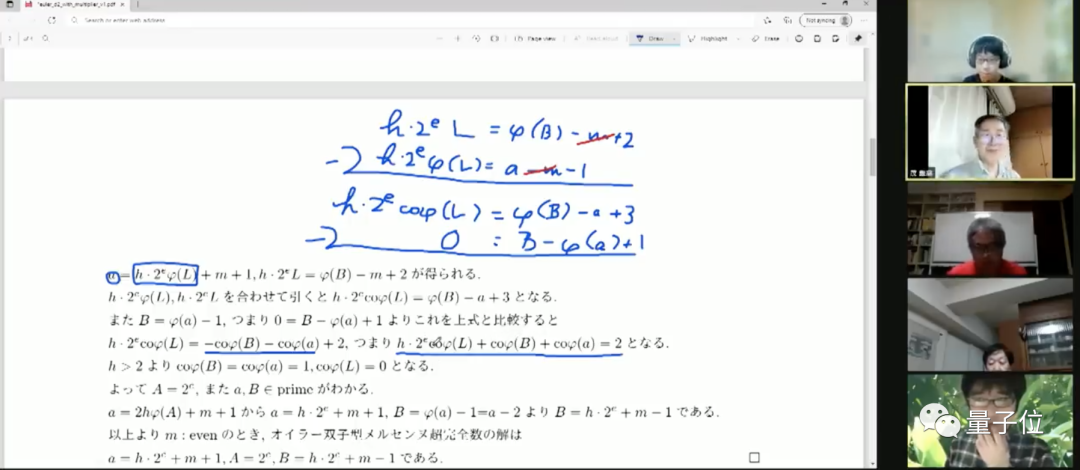 euler_d2_with_multiplier_v1.pdf
Search or enter web address
Not syncing
Page view
Read aloud
Draw
Highlight
Erase
h·2ᵉ L = φ(B) - m + 2
-) h·2ᵉ φ(L) = a - m - 1
h·2ᵉ coφ(L) = φ(B) - a + 3
-) 0 = B - φ(a) + 1
a = h · 2ᵉφ(L) + m + 1, h · 2ᵉL = φ(B) − m + 2 が得られる.
h · 2ᵉφ(L), h · 2ᵉL を合わせて引くと h · 2ᵉcoφ(L) = φ(B) − a + 3 となる.
また B = φ(a) − 1, つまり 0 = B − φ(a) + 1 よりこれを上式と比較すると
h · 2ᵉcoφ(L) = −coφ(B) − coφ(a) + 2, つまり h · 2ᵉcoφ(L) + coφ(B) + coφ(a) = 2 となる.
h > 2 より coφ(B) = coφ(a) = 1, coφ(L) = 0 となる.
よって A = 2ᵉ, また a, B ∈ prime がわかる.
a = 2hφ(A) + m + 1 から a = h · 2ᵉ + m + 1, B = φ(a) − 1=a − 2 より B = h · 2ᵉ + m − 1 である.
以上より m : even のとき, オイラー双子型メルセンヌ超完全数の解は
a = h · 2ᵉ + m + 1, A = 2ᵉ, B = h · 2ᵉ + m − 1 である. □
量子位